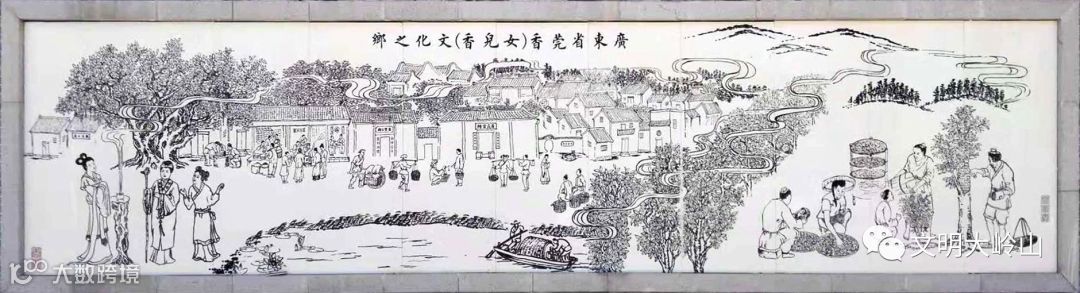 廣東省莞香(女兒香)文化之鄉
文明大岭山
大数跨境